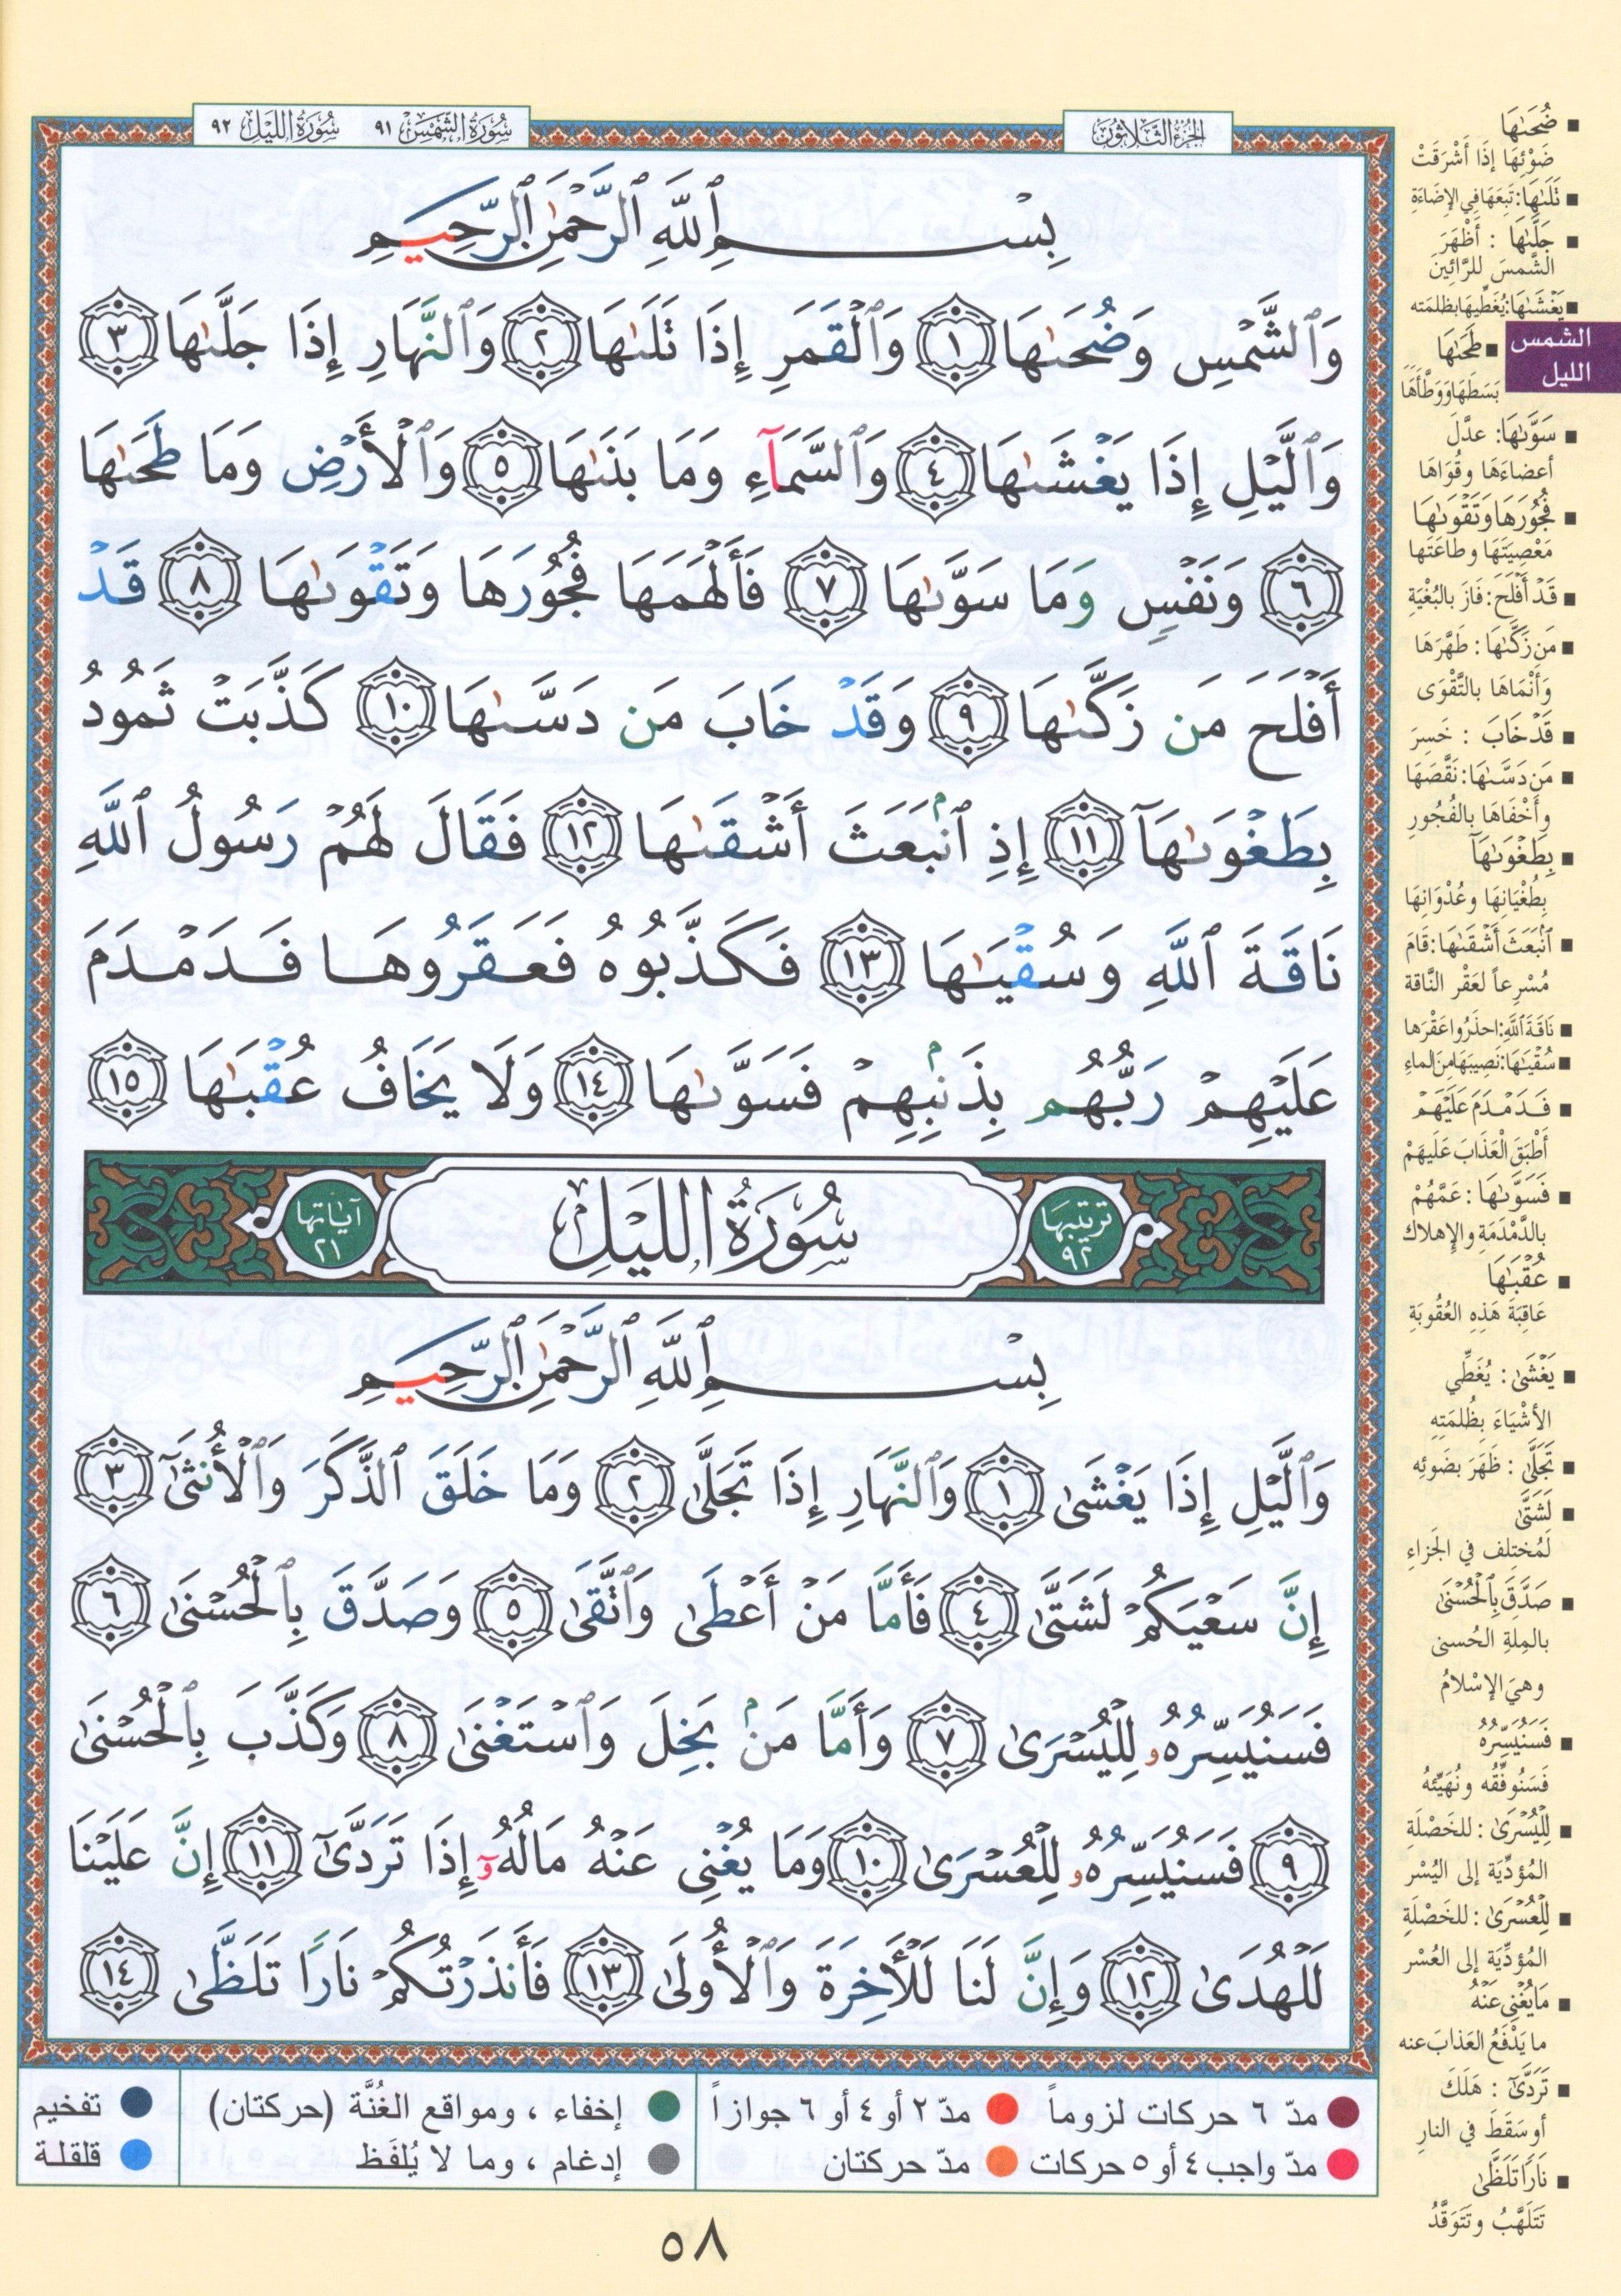 الجزء الثلاثون
سورة الشمس ٩١ سورة الليل ٩٢
بِسْمِ ٱللَّهِ ٱلرَّحْمَٰنِ ٱلرَّحِيمِ
وَٱلشَّمْسِ وَضُحَىٰهَا ١ وَٱلْقَمَرِ إِذَا تَلَىٰهَا ٢ وَٱلنَّهَارِ إِذَا جَلَّىٰهَا ٣
وَٱلَّيْلِ إِذَا يَغْشَىٰهَا ٤ وَٱلسَّمَآءِ وَمَا بَنَىٰهَا ٥ وَٱلْأَرْضِ وَمَا طَحَىٰهَا
٦ وَنَفْسٍ وَمَا سَوَّىٰهَا ٧ فَأَلْهَمَهَا فُجُورَهَا وَتَقْوَىٰهَا ٨ قَدْ
أَفْلَحَ مَن زَكَّىٰهَا ٩ وَقَدْ خَابَ مَن دَسَّىٰهَا ١٠ كَذَّبَتْ ثَمُودُ
بِطَغْوَىٰهَآ ١١ إِذِ ٱنۢبَعَثَ أَشْقَىٰهَا ١٢ فَقَالَ لَهُمْ رَسُولُ ٱللَّهِ
نَاقَةَ ٱللَّهِ وَسُقْيَٰهَا ١٣ فَكَذَّبُوهُ فَعَقَرُوهَا فَدَمْدَمَ
عَلَيْهِمْ رَبُّهُم بِذَنۢبِهِمْ فَسَوَّىٰهَا ١٤ وَلَا يَخَافُ عُقْبَٰهَا ١٥
ترتيبها ٩٢ سُورَةُ اللَّيْلِ آياتها ٢١
بِسْمِ ٱللَّهِ ٱلرَّحْمَٰنِ ٱلرَّحِيمِ
وَٱلَّيْلِ إِذَا يَغْشَىٰ ١ وَٱلنَّهَارِ إِذَا تَجَلَّىٰ ٢ وَمَا خَلَقَ ٱلذَّكَرَ وَٱلْأُنثَىٰٓ ٣
إِنَّ سَعْيَكُمْ لَشَتَّىٰ ٤ فَأَمَّا مَنْ أَعْطَىٰ وَٱتَّقَىٰ ٥ وَصَدَّقَ بِٱلْحُسْنَىٰ ٦
فَسَنُيَسِّرُهُۥ لِلْيُسْرَىٰ ٧ وَأَمَّا مَنۢ بَخِلَ وَٱسْتَغْنَىٰ ٨ وَكَذَّبَ بِٱلْحُسْنَىٰ
٩ فَسَنُيَسِّرُهُۥ لِلْعُسْرَىٰ ١٠ وَمَا يُغْنِى عَنْهُ مَالُهُۥٓ إِذَا تَرَدَّىٰٓ ١١ إِنَّ عَلَيْنَا
لَلْهُدَىٰ ١٢ وَإِنَّ لَنَا لَلْأَخِرَةَ وَٱلْأُولَىٰ ١٣ فَأَنذَرْتُكُمْ نَارًا تَلَظَّىٰ ١٤
ضُحَىٰهَا
ضَوْئِهَا إِذَا أَشْرَقَتْ
تَلَىٰهَا: تَبِعَهَا فِي الإِضَاءَةِ
جَلَّىٰهَا : أَظْهَرَ
الشَّمْسَ لِلرَّائِينَ
يَغْشَىٰهَا: يُغَطِّيهَا بِظُلْمَتِه
الشمس
الليل
طَحَىٰهَا
بَسَطَهَا وَوَطَّأَهَا
سَوَّىٰهَا: عدَّلَ
أعضاءَهَا وقُوَاهَا
فُجُورَهَا وَتَقْوَىٰهَا
مَعْصِيَتَهَا وطَاعَتَها
قَدْ أَفْلَحَ: فَازَ بالبُغْيَةِ
مَن زَكَّىٰهَا : طَهَّرَهَا
وَأَنْمَاهَا بالتَّقْوَى
قَدْ خَابَ : خَسِرَ
مَن دَسَّىٰهَا: نَقَّصَهَا
وأَخْفَاهَا بِالفُجُورِ
بِطَغْوَىٰهَآ
بِطُغْيَانِهَا وعُدْوَانِهَا
ٱنۢبَعَثَ أَشْقَىٰهَا: قَامَ
مُسْرِعاً لعَقْرِ النَّاقة
نَاقَةَ ٱللَّهِ: احذَرُوا عَقْرَها
سُقْيَٰهَا: نَصِيبَهَا مِنَ الماءِ
فَدَمْدَمَ عَلَيْهِمْ
أَطْبَقَ العَذَابَ عَلَيهَمْ
فَسَوَّىٰهَا : عَمَّهُمْ
بالدَّمْدَمَةِ والإهلاك
عُقْبَٰهَا
عَاقِبَةَ هَذِهِ العُقُوبَةِ
يَغْشَىٰ : يُغَطِّي
الأشْيَاءَ بِظُلمَتِهِ
تَجَلَّىٰ : ظَهَرَ بِضَوئِه
لَشَتَّىٰ
لَمُختلِف في الجَزاءِ
صَدَّقَ بِٱلْحُسْنَىٰ
بالمِلةِ الحُسنى
وهيَ الإسْلامُ
فَسَنُيَسِّرُهُ
فَسَنُوفِّقُه ونُهَيِّئهُ
لِلْيُسْرَىٰ : للخَصْلَةِ
المُؤدِّيَة إلى اليُسْر
لِلْعُسْرَىٰ : للخَصْلَةِ
المُؤدِّيَة إلى العُسْر
مَا يُغْنِى عَنْهُ
ما يَدْفَعُ العَذابَ عنه
تَرَدَّىٰٓ : هَلَكَ
أو سَقَطَ في النارِ
نَارًا تَلَظَّىٰ
تَتَلَهَّبُ وتَتَوَقَّدُ
مدّ ٦ حركات لزوماً مدّ ٢ أو ٤ أو ٦ جوازاً إخفاء ، ومواقع الغُنَّة (حركتان) تفخيم
مدّ واجب ٤ أو ٥ حركات مدّ حركتان إدغام ، وما لا يُلفَظ قلقلة
٥٨